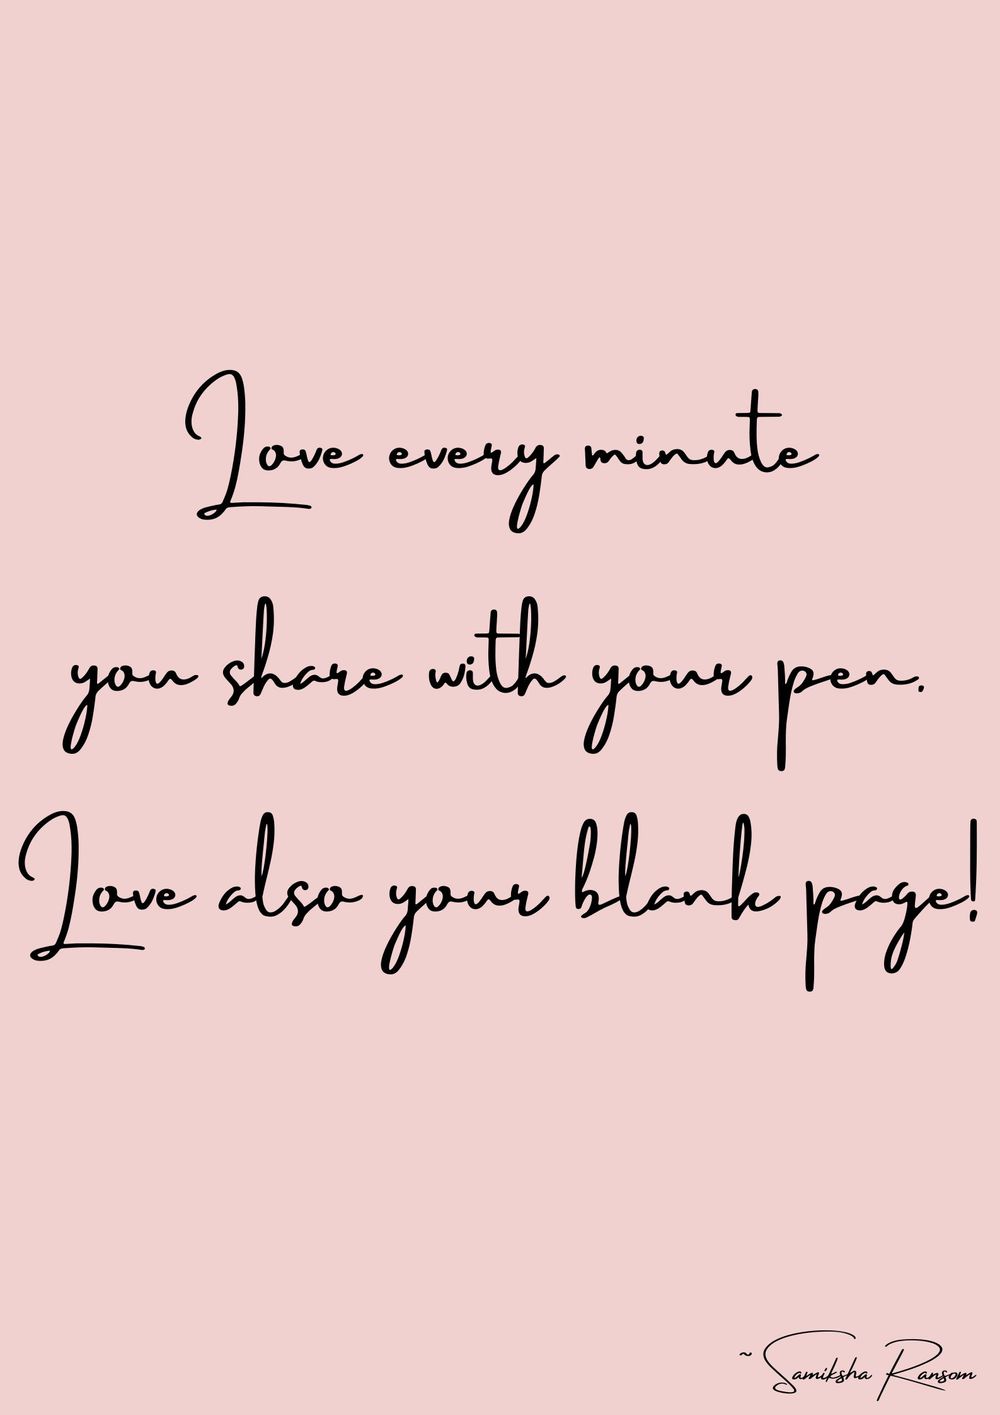 Love every minute
you share with your pen.
Love also your blank page!
~ Samiksha Ransom